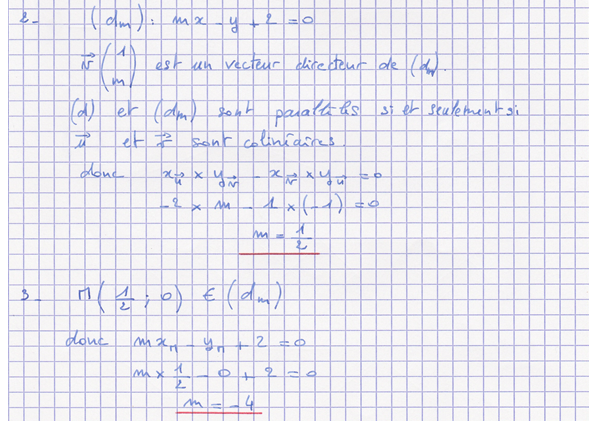 2- (dm) : mx - y + 2 = 0
v⃗ (1 m) est un vecteur directeur de (dm).
(d) et (dm) sont parallèles si et seulement si
u⃗ et v⃗ sont colinéaires.
donc x_u⃗ × y_v⃗ - x_v⃗ × y_u⃗ = 0
-2 × m - 1 × (-1) = 0
m = 1/2
3- M(1/2 ; 0) ∈ (dm)
donc mx_M - y_M + 2 = 0
m × 1/2 - 0 + 2 = 0
m = -4